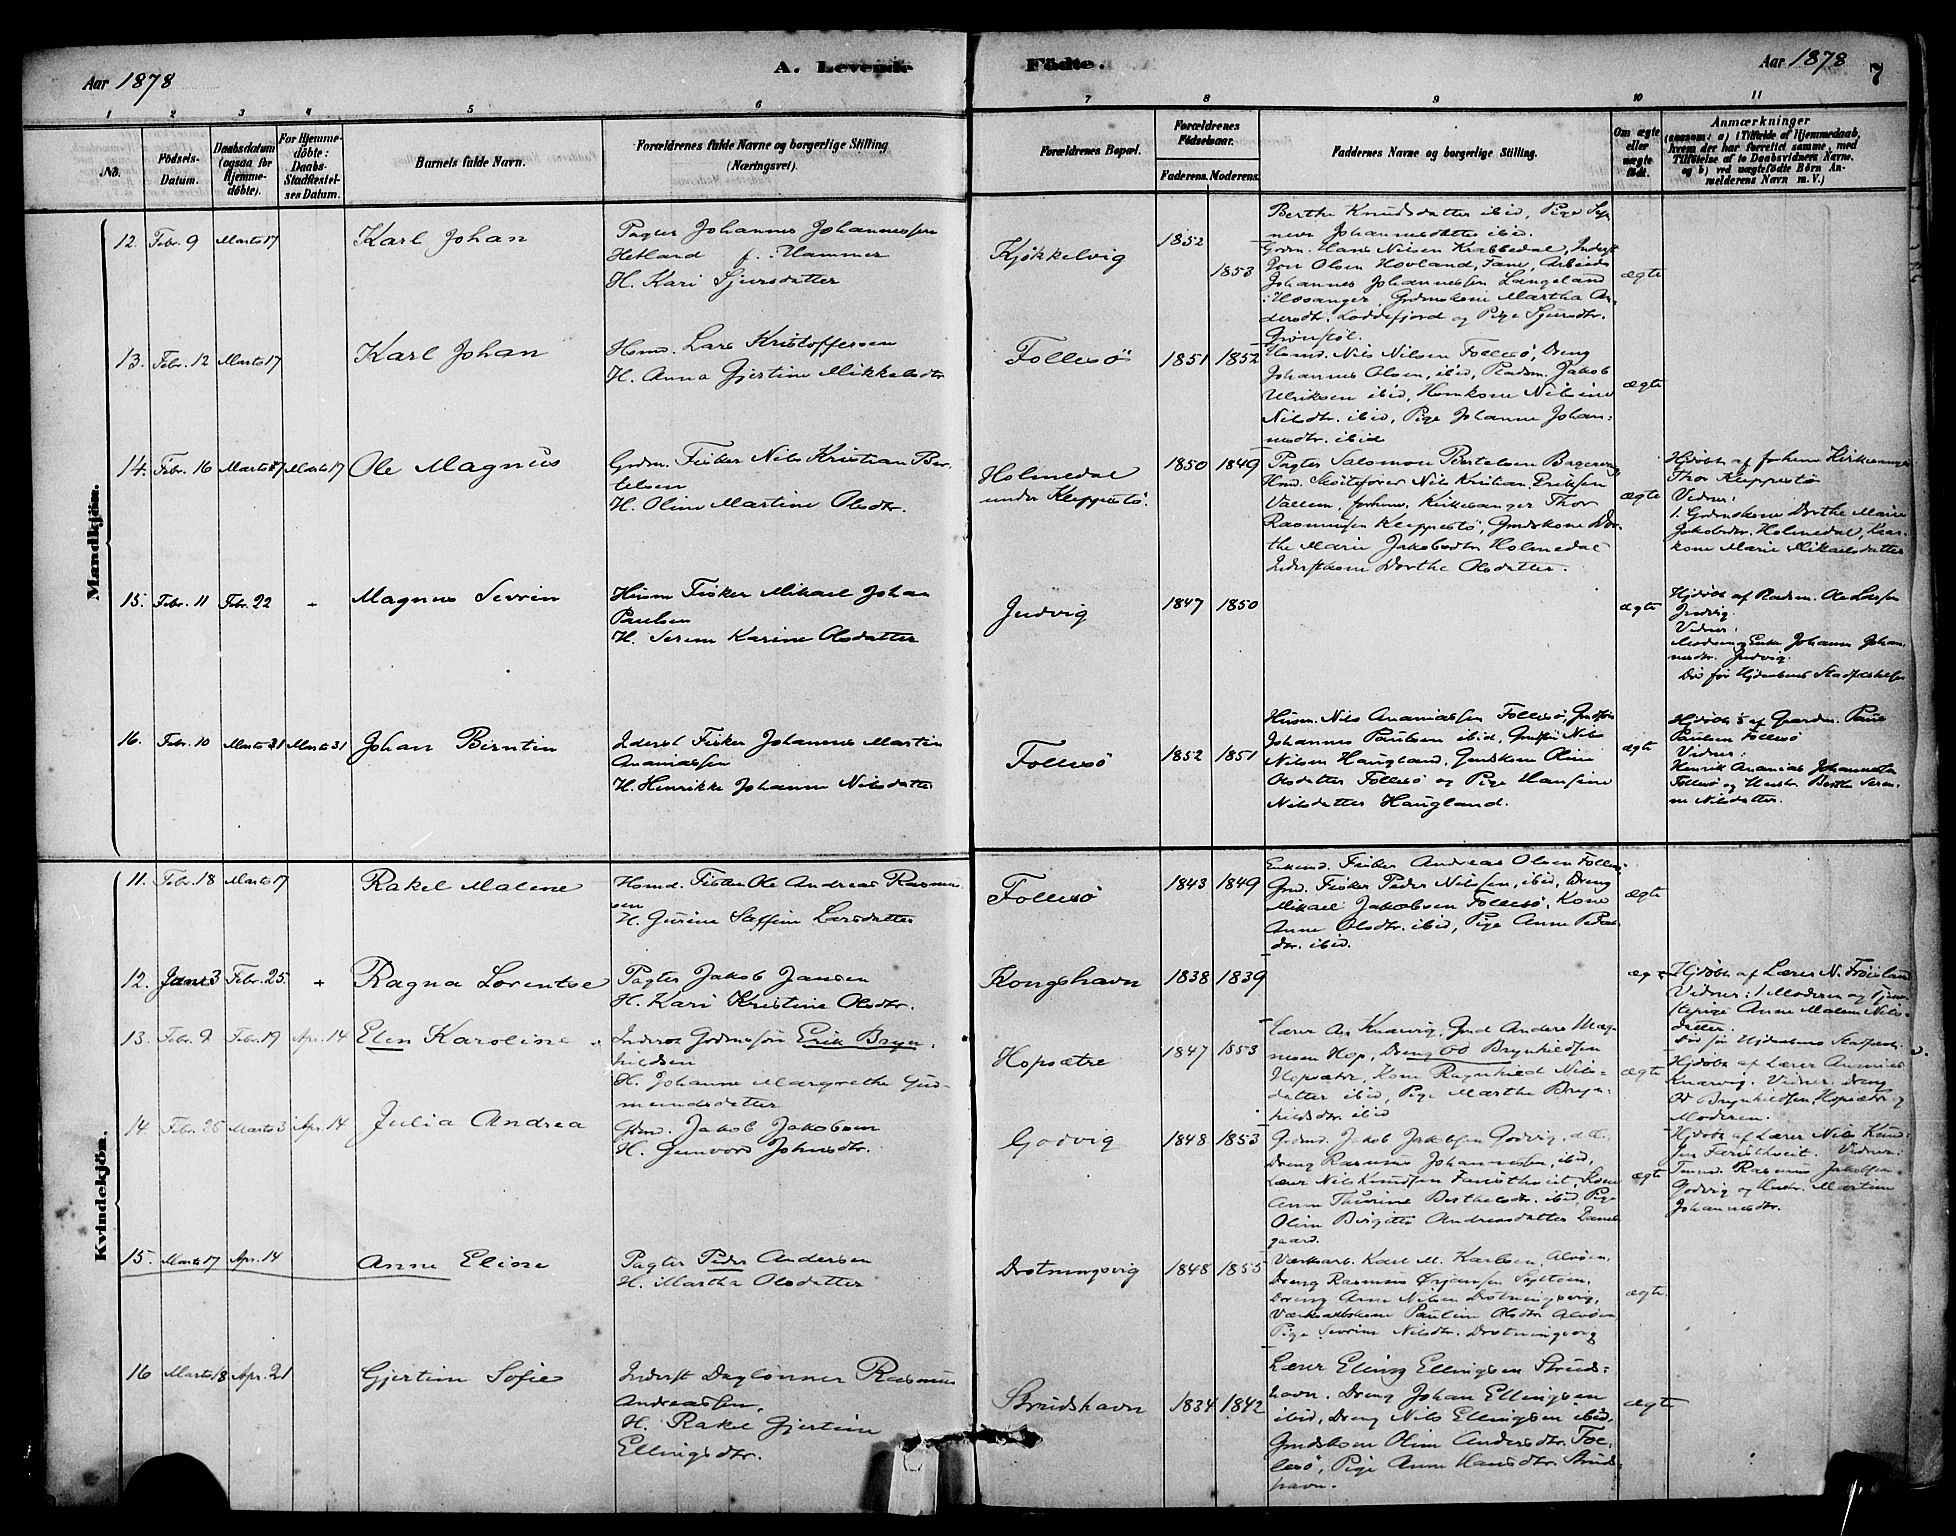 Aar 1878
A. Levende
Födte.
Aar 1878
7
1 2 3 4 5 6 7 8 9 10 11
No.
Födsels-Datum.
Daabsdatum (ogsaa for Hjemmedöbte).
For Hjemmedöbte: Daabs Stadfæstelses Datum.
Barnets fulde Navn.
Forældrenes fulde Navne og borgerlige Stilling (Næringsvei).
Forældrenes Bopæl.
Forældrenes Födselsaar.
Faderens. Moderens.
Faddernes Navne og borgerlige Stilling.
Om ægte eller uægte födt.
Anmærkninger
(saasom: a) i Tilfælde af Hjemmedaab, hvem der har forrettet samme, med Tilföielse af to Daabsvidners Navne, og b) ved uægtefödte Börn Anmelderens Navn m. V.)
Mandkjön.
12. Febr. 9 Marts 17 Karl Johan
Pagter Johannes Johannessen
Hetland f. Hammer
H. Kari Sjursdatter
Kjøkkelvig 1852 1853
Berthe Knudsdatter ibid, Pige
Johannesdatter ibid.
Grdm. Hans Nilsen Krabbedal, Inderst
Olsen Hovland, Fane, Arbeids
Johannes Johannessen Langeland
Hosanger, Grdmskone Martha An-
dersdtr. Loddefjord og Pige Sjursdtr.
ægte
13. Febr. 12 Marts 17 Karl Johan
Hsmd. Lars Kristoffersen
H. Anna Gjertine Mikkelsdtr
Follesö 1851 1852
Husmd. Nils Nilsen Follesö, Dreng
Johannes Olsen, ibid, Pladsm. Jakob
Ulriksen ibid, Huskone Nilsine
Nilsdtr. ibid, Pige Johanne Johan-
nesdtr. ibid
ægte
14. Febr. 16 Marts 17 Marts 17 Ole Magnus
Grdm. Fisker Nils Kristian Ber-
telsen
H. Oline Martine Olsdtr.
Holmedal
under Kleppestö. 1850 1849
Pagter Salomon Bertelsen
Hsmd. Skøitefører Nils Kristian Eriksen
forhenv. Kirkesanger Thor
Rasmussen Kleppestö, Grdskone Dor-
the Marie Jakobsdtr Holmedal
Inderstkone Dorthe Olsdatter.
ægte
Hjdöbt af forhenv. Kirkesanger
Thor Kleppestö
Vidner:
1. Grdmskone Dorthe Marie
Jakobsdtr. Holmedal,
kone Marie Mikaelsdatter
15. Febr. 11 Febr. 22 Magnus Sevrin
Husm Fisker Mikael Johan
Paulsen
H. Seren Karine Olsdatter
Indvig 1847 1850
ægte
Hjdöbt af Pladsm. Ole Larsen
Indvig.
Vidner:
Moderen og Enke Johanne Johan-
nesdtr. Indvig.
Död før Hjdaabens Stadfæstelse
16. Febr. 10 Marts 31 Marts 31 Johan Berntin
Inderst Fisker Johannes Martin
Ananiassen
H. Henrikke Johanne Nilsdatter
Follesö 1852 1851
Husm. Nils Ananiassen Follesö,
Johannes Paulsen ibid, Nils
Nilsen Haugland, Grdskone Oline
Olsdatter Follesö og Pige Hansine
Nilsdatter Haugland.
ægte
Hjdöbt af Gaardm. Paul
Paulsen Follesö
Vidner:
Henrik Ananias Johannesen
Follesö og Hustr. Berthe Seren-
ne Nilsdatter.
Kvindekjön.
11. Febr. 18 Marts 17 Rakel Malene
Hsmd. Fisker Ole Andreas Rasmus-
sen
H. Gurine Steffine Larsdatter
Follesö 1843 1849
Enkemd. Fisker Andreas Olsen Follesö,
Grd. Fisker Peder Nilssen, ibid, Dreng
Mikael Jakobsen Follesö, Kone
Anne Olsdtr. ibid, Pige Anne Peders-
dtr. ibid.
ægte
12. Jan. 3 Febr. 25. + Ragna Lorentse
Pagter Jakob Jansen
H. Kari Kristine Olsdtr.
Kongshavn 1838 1839
ægte
Hjdöbt af Lærer N. Fröisland
Vidner: 1 Moderen og Tjene-
stepige Anne Malene Nils-
datter.
Död før Hjdaabens Stadfæst.
13. Febr. 9 Febr. 19 Apr. 14 Elen Karoline
Inderst Grdmssøn Erik Bryn-
hildsen
H. Johanne Margrethe Gud-
mundsdatter
Hopsætre 1847 1853
Lærer As. Knarvig, Grd Anders Mag-
nesen Hop, Dreng Od Brynhildsen
Hopsætre, Kone Ragnhild Nils-
datter ibid, Pige Marthe Bryn-
hildsdtr. ibid
ægte
Hjdöbt af Lærer
Knarvig. Vidner: Dreng
Od Brynhildsen, Hopsætre og
Moderen.
14 Febr. 25 Marts 3 Apr. 14 Julia Andrea
Grdm. Jakob Jakobsen
H. Gunvor Johnsdtr.
Godvig 1848 1853
Grdmd. Jakob Jakobsen Godvig, d.æ.
Dreng Rasmus Johannessen, ibid,
Lærer Nils Knudsen Fanesthveit, Kone
Anne Thurine Berthelsdtr. ibid, Pige
Oline Birgitte Andreasdatter Dams-
gaard.
ægte
Hjdöbt af Lærer Nils Knud-
sen Fanesthveit. Vidner:
Rasmus Jakobsen
Godvig og Hustr. Martine
Johannesdtr.
15. Marts 17 Apr. 14 Anne Elise
Pagter Peder Andersen
H. Martha Olsdatter
Drotningsvig 1848 1855
Værksarb. Karl M. Karlsen, Alvöen,
Dreng Rasmus Ørjansen
Dreng Arne Nilsen Drotningsvig,
Værksarbkone Pauline Olsdtr Alvöen
Pige Sevrine Nilsdtr. Drotningsvig
ægte.
16 Marts 18 Apr. 21 Gjertine Sofie
Inderst Daglönner Rasmus
Andreassen.
H. Rakel Gjertine
Ellingsdtr.
Strudshavn 1834 1842
Lærer Eling Ellingsen Struds-
havn. Dreng Johan Ellingsen
ibid, Dreng Nils Ellingsen ibid,
Grdskone Oline Andersdtr. Fol-
lesö, Pige Anne Hansdtr. Struds-
havn.
ægte